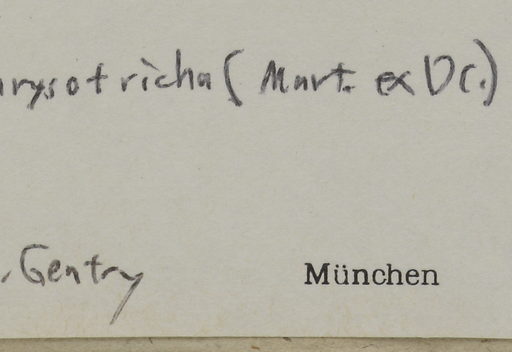 rysotricha (Mart. ex DC.)
. Gentry München